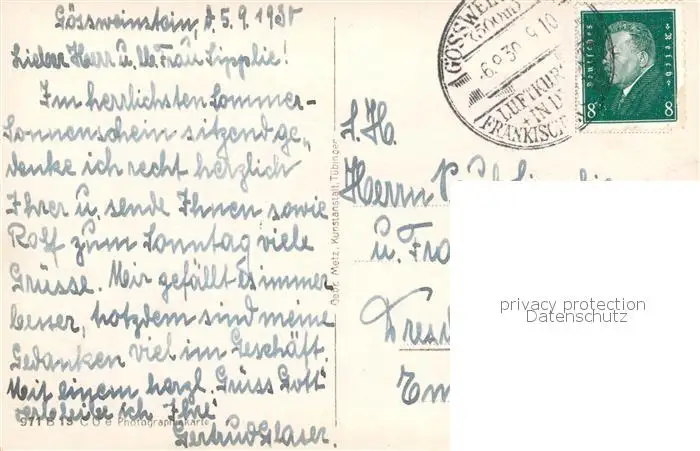 Gössweinstein, d. 5.9.1930
Lieber Herr u. lb. Frau Lipplie!
Im herrlichsten Sommer-
Sonnenschein sitzend ge-
denke ich recht herzlich
Ihrer u. sende Ihnen sowie
Rolf zum Sonntag viele
Grüsse. Mir gefällt es immer
besser, trotzdem sind meine
Gedanken viel im Geschäft.
Mit einem herzl. "Grüss Gott"
verbleibe ich Ihre
Gertrud Glaser.
971 B 13 C U e Photographiekarte
Gebr. Metz, Kunstanstalt, Tübingen
GÖSSWE
(500m)
-6.9.30 9-10
LUFTKUR
IN D
FRÄNKISCH
Deutsches Reich
8 8
S. H.
Herrn
u. Fra
Dresd
Em
privacy protection
Datenschutz